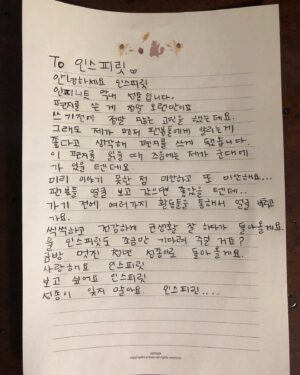 To 인스피릿
안녕하세요 인스피릿
인피니트 막내 성종입니다.
편지를 쓰는 게 정말 오랜만이죠
쓰기전에 정말 많은 고민을 했는데요.
그래도 제가 먼저 팬분들에게 알리는게
좋다고 생각해 편지를 쓰게 됐습니다.
이 편지를 읽을 때 쯤에는 제가 군대에
가 있을 텐데요.
미리 이야기 못한 점 미안하고 또 미안해요...
팬분들 얼굴 보고 갔으면 좋았을 텐데..
가기 전에 여러가지 활동들을 통해서 얼굴
가요.
씩씩하고 건강하게 군생활 잘 하다가 돌아올게요.
울 인스피릿도 조금만 기다려 주실 거죠?
금방 멋진 청년 성종이로 돌아올게요.
사랑해요 인스피릿
보고 싶어요 인스피릿
성종이 잊지 말아요. 인스피릿....